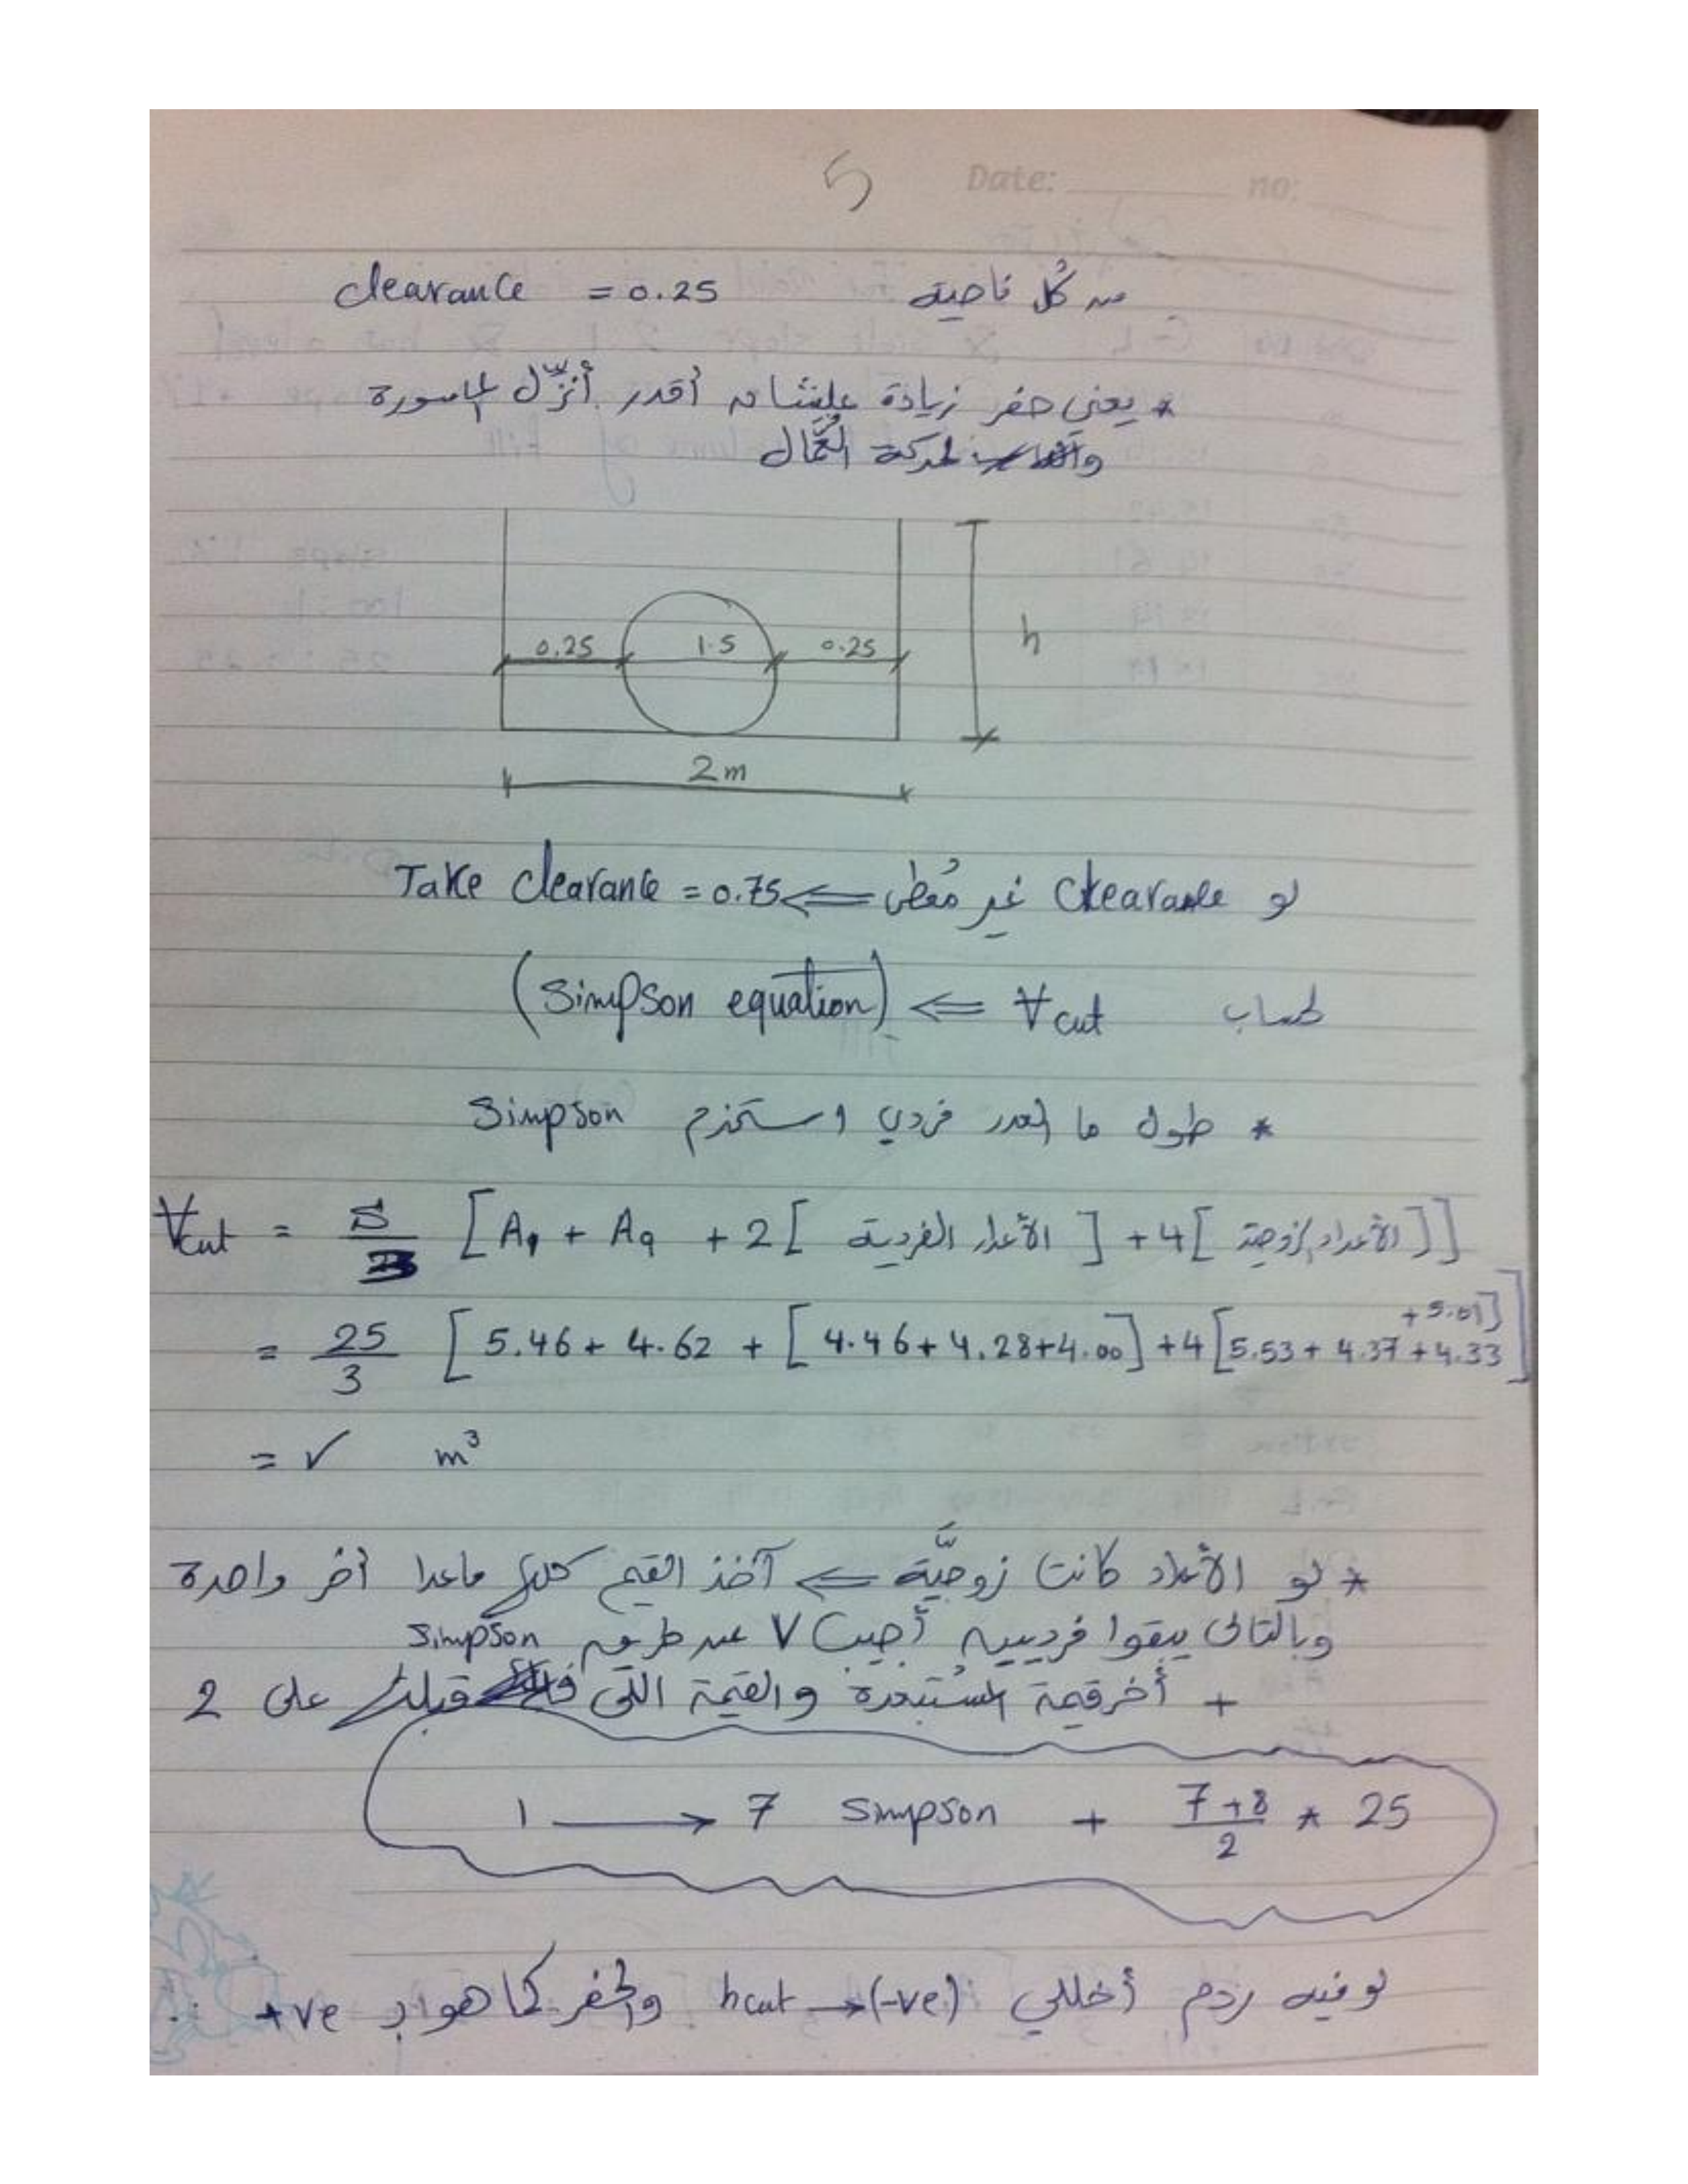 5
Date: no:
clearance = 0.25 من كُل ناحية
* يعني حفر زيادة علشان أقدر أنزّل الماسورة
لحركة العُمَّال
0.25 1.5 0.25
h
2m
لو Clearance غير مُعطى ⇐ Take Clearance = 0.75
لحساب V cut ⇐ (Simpson equation)
* طول ما العدد فردي استخدم Simpson
Vcut = S/3 [A1 + A9 + 2[ الأعداد الفردية ] + 4[ الأعداد الزوجية ]]
= 25/3 [5.46 + 4.62 + [4.46 + 4.28 + 4.00] + 4[5.53 + 4.37 + 4.33 + 5.01]]
= ✓ m³
* لو الأعداد كانت زوجيَّة ⇐ آخذ القيم كلها ماعدا أخر واحدة
وبالتالى يبقوا فرديين أجيب V عن طريق Simpson
+ أخر قيمة المُستبعدة والقيمة اللى قبلها على 2
1 → 7 Simpson + 7+8/2 * 25
لو فيه ردم أخللي hcut → (-ve) والحفر كما هو بـ +ve